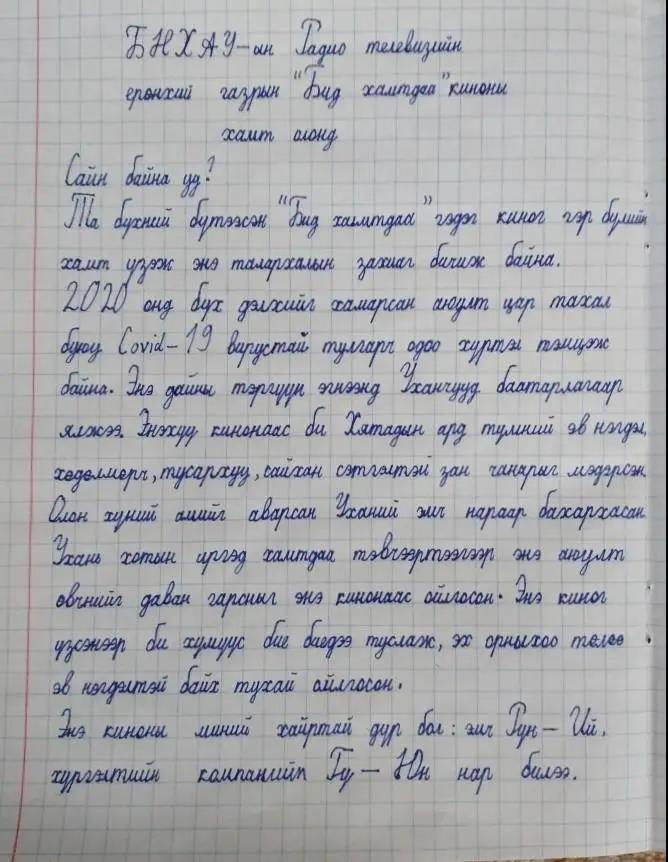 БНХАУ-ын Радио телевизийн
ерөнхий газрын "Бид хамтдаа" киноны
хамт олонд
Сайн байна уу?
Та бүхний бүтээсэн "Бид хамтдаа" гэдэг киног гэр бүлийн
хамт үзэж энэ талархалын захиаг бичиж байна.
2020 онд бүх дэлхийг хамарсан аюулт цар тахал
буюу Covid-19 варустай тулгарч одоо хүртэл тэмцэж
байна. Энэ дайны тэргүүн эгнээнд Уханчууд баатарлагаар
ялжээ. Энэхүү кинонаас би Хятадын ард түмний эв нэгдэл,
хөдөлмөрч, тусархуу, сайхан сэтгэлтэй зан чанарыг мэдэрсэн.
Олон хүний амийг аварсан Уханий эмч нараар бахархасан.
Ухань хотын иргэд хамтдаа тэвчээртээгээр энэ аюулт
өвчнийг даван гарсныг энэ кинонаас ойлгосон. Энэ киног
үзсэнээр би хүмүүс бие биедээ туслаж, эх орныхоо төлөө
эв нэгдэлтэй байх тухай ойлгосон.
Энэ киноны миний хайртай дүр бол: эмч Рун-Ий,
хүргэлтийн компанийн Гу-Юн нар билээ.